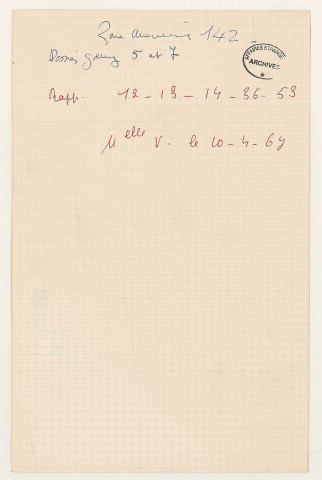 Zone Américaine 142 -
AFFAIRES ETRANG.
ARCHIVES
Dossiers Goering 5 et 7
Rapp. 12 - 13 - 14 - 36 - 53
Melle V. le 10 - 4 - 69